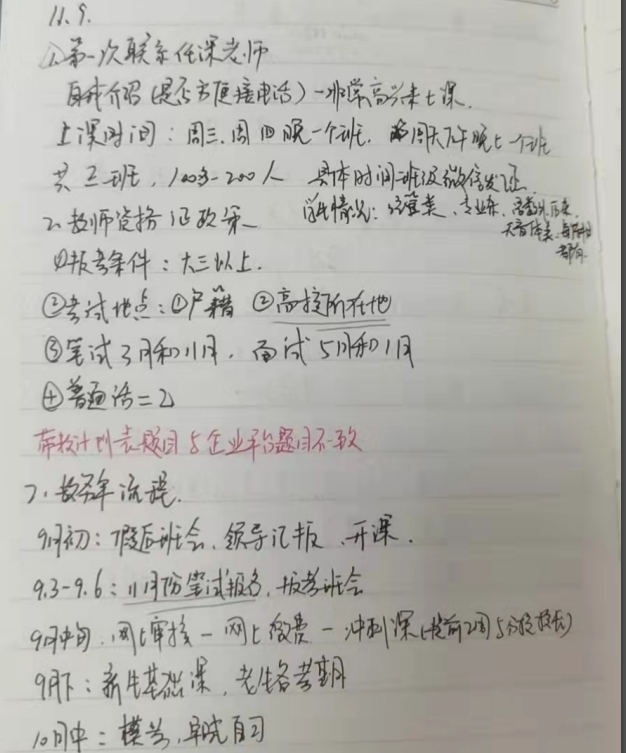 11.9.
①第一次联系任课老师
自我介绍(是否方便接电话)-非常高兴来上课.
上课时间:周三、周四晚一个班. 周六下午晚上一个班
共三班, 100多-200人 具体时间班级微信发送.
情况:经管类、专业
2.教师资格证政策
①报考条件:大三以上.
②考试地点:①户籍 ②高校所在地
③笔试3月和11月. 面试5月和1月
④普通话=乙
带教计划表题目与企业平台题目不一致
7.教资年流程.
9月初:假后班会、领导汇报、开课.
9.3-9.6:11月份笔试报名,报考班会
9月中旬.网上审核-网上缴费-冲刺课(提前2周与分校校长)
9月下:新生基础课,老生备考期
10月中:模考,早晚自习